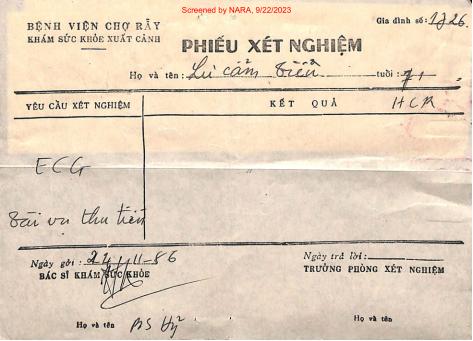 Screened by NARA, 9/22/2023
BỆNH VIỆN CHỢ RẪY
KHÁM SỨC KHỎE XUẤT CẢNH
Gia đình số: 1826.
PHIẾU XÉT NGHIỆM
Họ và tên: Lư Cẩm tuổi: 71
YÊU CẦU XÉT NGHIỆM
KẾT QUẢ HCR
ECG
Tài vụ thu tiền
Ngày gởi: 24/11-86
Ngày trả lời:
BÁC SĨ KHÁM SỨC KHỎE
TRƯỞNG PHÒNG XÉT NGHIỆM
Họ và tên BS Hỷ
Họ và tên